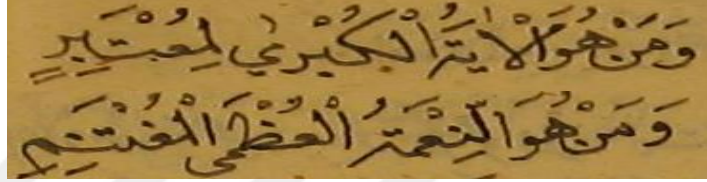 وَمَنْ هُوَ الْاٰيَةُ الْكُبْرٰي لِمُعْتَبِرٍ
وَمَنْ هُوَ النِّعْمَةُ الْعُظْمٰي لِمُغْتَنِمٍ